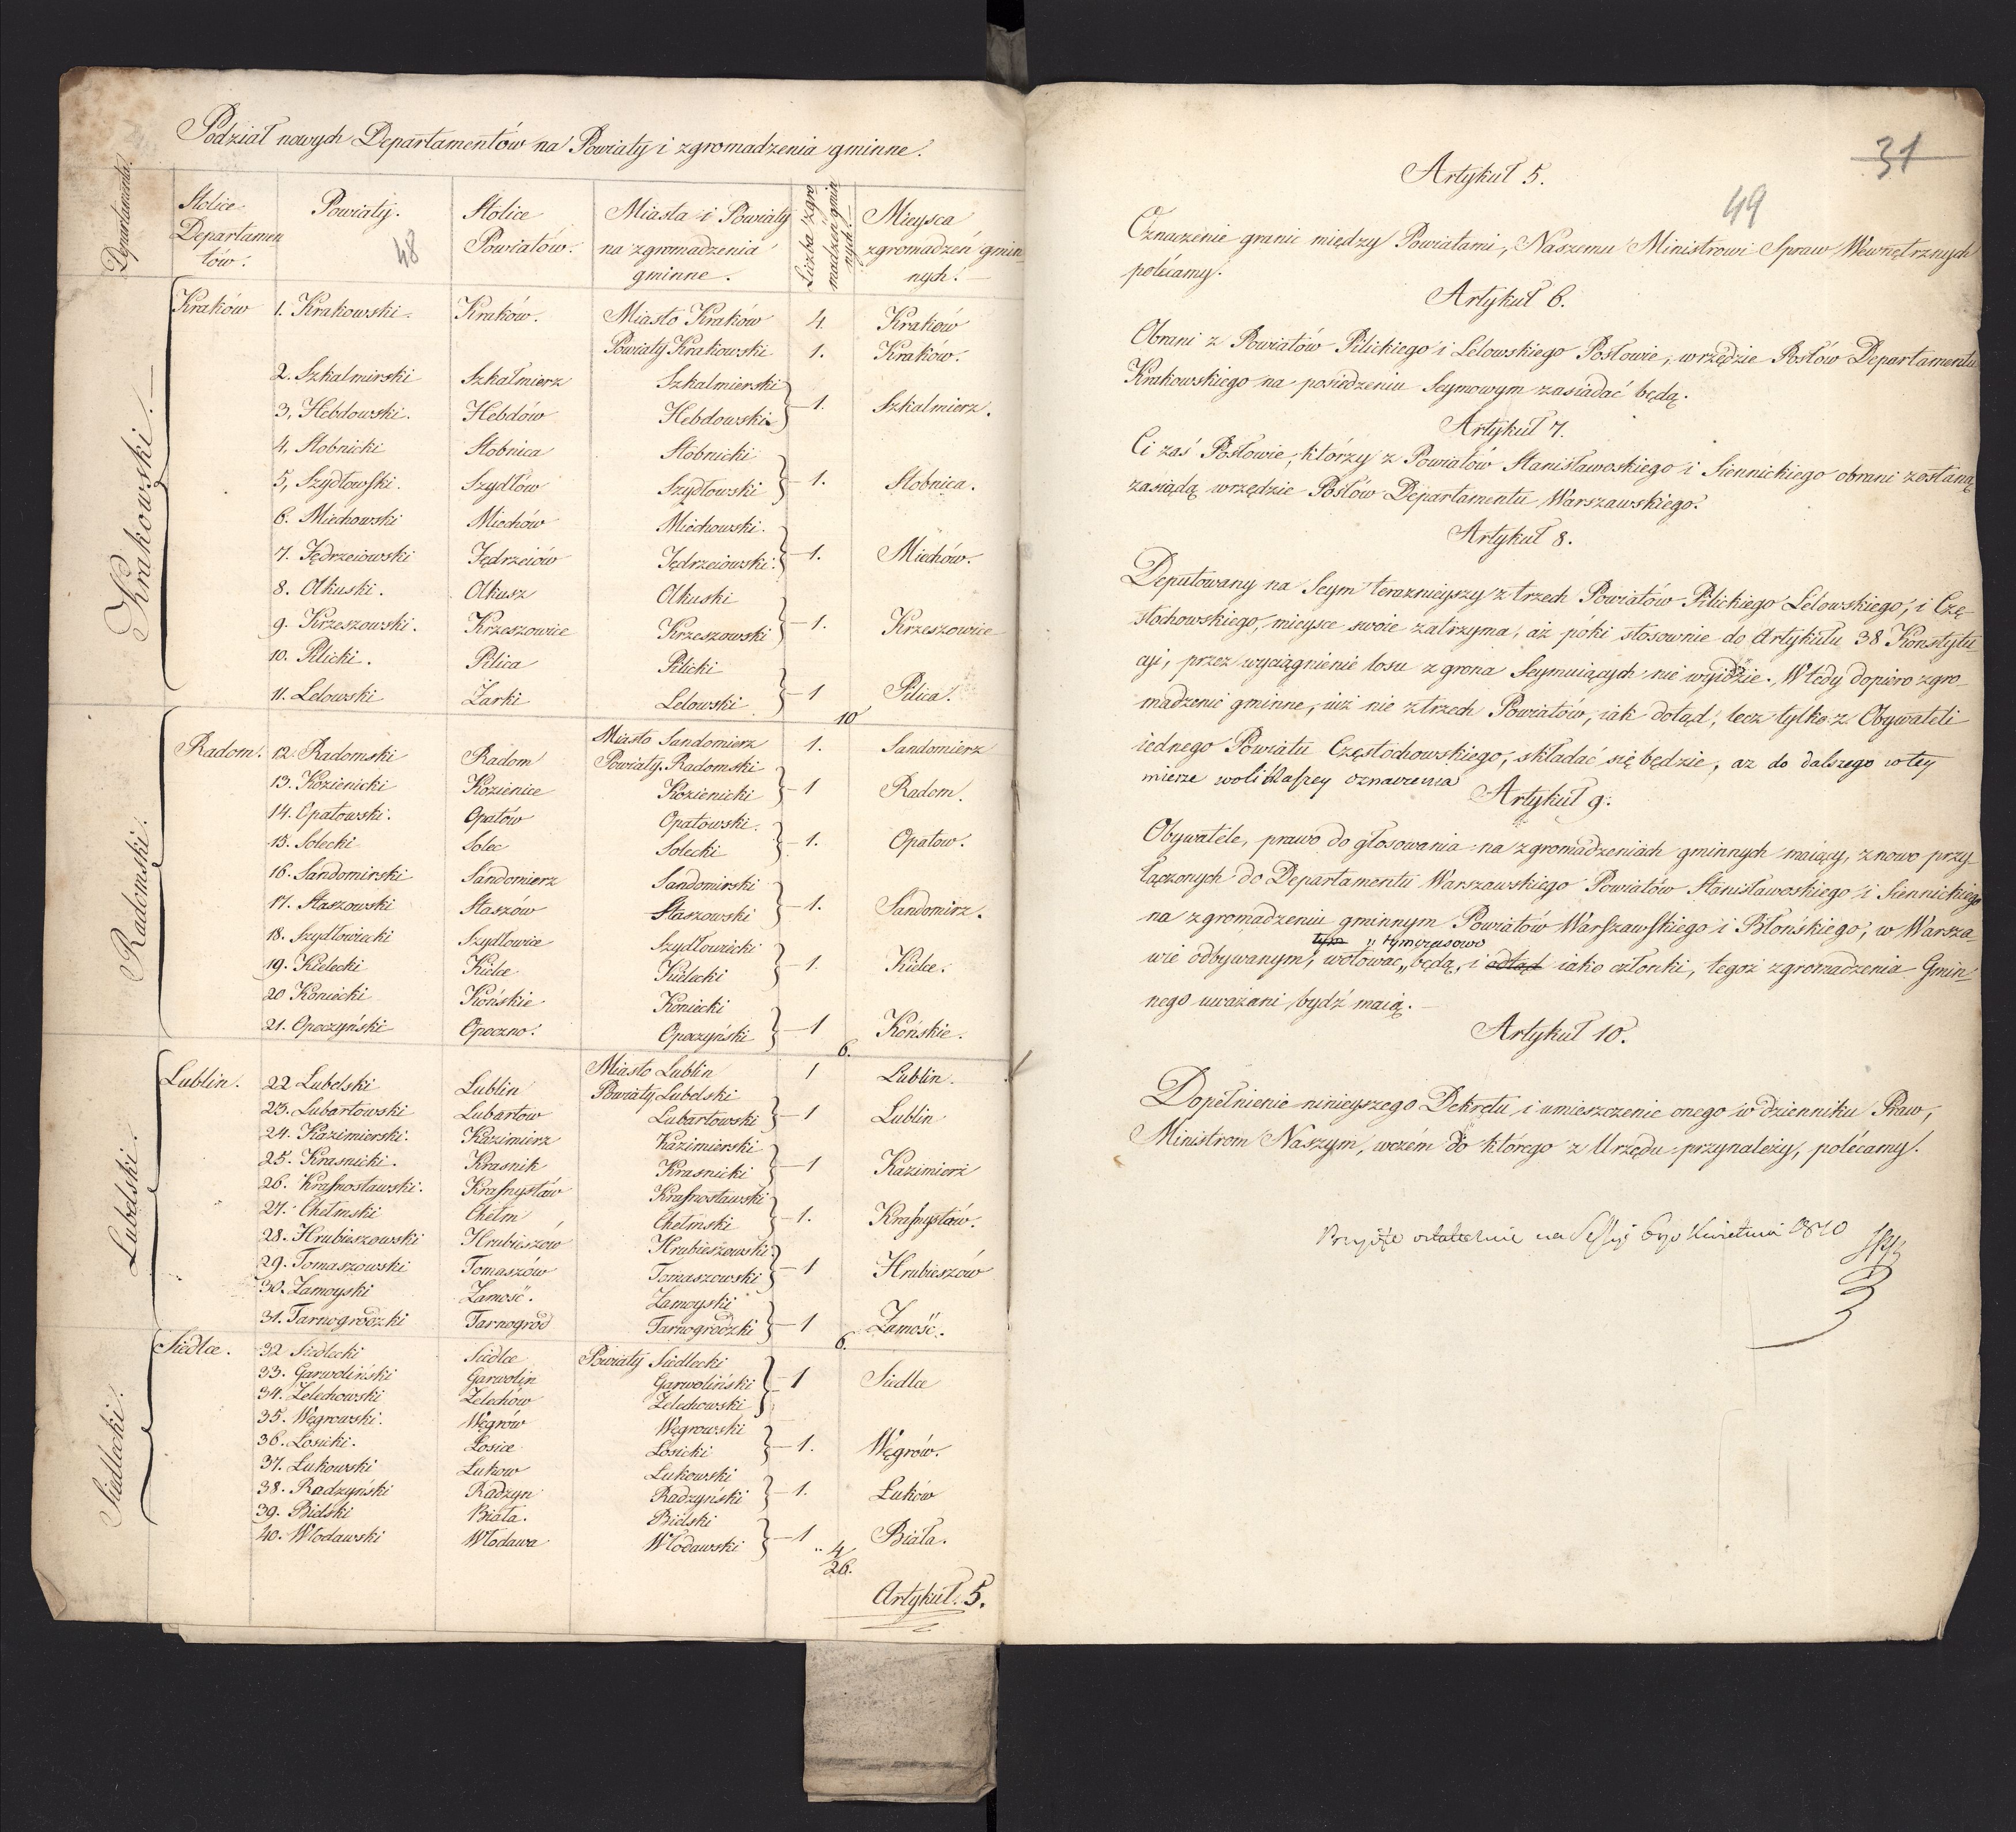 Podział nowych Departamentów na Powiaty i zgromadzenia gminne.
Departamenta. Stolice Departamen tów. Powiaty. Stolice Powiatów. Miasta i Powiaty na zgromadzenia gminne. Liczba zgro madzeń gmin nych. Mieysca zgromadzeń gmin nych.
48
Krakowski.
Kraków 1. Krakowski. Kraków. Miasto Kraków 4. Kraków
Powiaty Krakowski 1. Kraków.
2. Szkalmirski Szkalmierz Szkalmierski
3, Hebdowski. Hebdów Hebdowski 1. Szkalmierz.
4, Stobnicki Stobnica Stobnicki
5, Szydłowski. Szydłów Szydłowski 1. Stobnica.
6. Miechowski Miechów Miechowski.
7. Jędrzeiowski Jędrzeiów Jędrzeiowski. 1. Miechów.
8. Olkuski. Olkusz Olkuski
9. Krzeszowski. Krzeszowice Krzeszowski 1. Krzeszowice
10. Pilicki. Pilica Pilicki
11. Lelowski Żarki Lelowski 1 Pilica.
10
Radomski.
Radom. Miasto Sandomierz 1. Sandomierz
12. Radomski Radom Powiaty Radomski
13. Kozienicki Kozienice Kozienicki 1 Radom.
14. Opatowski. Opatów Opatowski.
15. Solecki Solec Solecki 1. Opatow.
16. Sandomirski Sandomierz Sandomirski
17. Staszowski Staszów Staszowski 1. Sandomirz.
18. Szydłowiecki Szydłowice Szydłowiecki
19. Kielecki Kielce Kielecki 1. Kielce.
20 Koniecki Końskie Koniecki
21. Opoczyński Opoczno. Opoczyński 1 Końskie.
6.
Lubelski.
Lublin. Miasto Lublin 1 Lublin.
22 Lubelski Lublin Powiaty Lubelski
23. Lubartowski Lubartow Lubartowski 1 Lublin
24. Kazimierski. Kazimierz Kazimierski
25. Krasnicki. Krasnik Krasnicki 1 Kazimierz
26. Krasnostawski. Krasnystaw Krasnostawski
27. Chełmski Chełm Chełmski 1. Krasnystaw.
28. Hrubieszowski Hrubieszów Hrubieszowski
29. Tomaszowski Tomaszów Tomaszowski 1 Hrubieszów
30. Zamoyski Zamość. Zamoyski
31. Tarnogrodzki Tarnogrod Tarnogrodzki 1 Zamość.
6.
Siedlecki.
Siedlce. 32 Siedlecki Siedlce Powiaty Siedlecki
33. Garwoliński Garwolin Garwoliński 1 Siedlce
34. Żelechowski Żelechów Żelechowski
35. Węgrowski. Węgrów Węgrowski
36. Łosicki. Łosice Łosicki 1. Węgrów.
37. Łukowski Łukow Łukowski
38. Radzyński Radzyn Radzyński 1. Łuków
39. Bielski Biała. Bielski
40. Włodawski Włodawa Włodawski 1 Biała.
4
26.
Artykuł. 5.
31
49
Artykuł 5.
Oznaczenie granic między Powiatami, Naszemu Ministrowi Spraw Wewnętrznych
polécamy.
Artykuł 6.
Obrani z Powiatów Pilickiego i Lelowskiego Posłowie, w rzędzie Posłów Departamentu
Krakowskiego na posiedzeniu Seymowym zasiadać będą.
Artykuł 7.
Ci zaś Posłowie, którzy z Powiatów Stanisławoskiego i Siennickiego obrani zostaną
zasiądą w rzędzie Posłów Departamentu Warszawskiego.
Artykuł 8.
Deputowany na Seym teraznieyszy z trzech Powiatów Pilickiego Lelowskiego, i Czę-
stochowskiego, mieysce swoie zatrzyma, aż póki stosownie do Artykułu 38 Konstytu-
cyi, przez wyciągnienie losu z grona Seymuiących nie wyidzie. Wtedy dopiero zgro-
madzenie gminne, iuż nie z trzech Powiatów, iak dotąd, lecz tylko z Obywateli
iednego Powiatu Częstochowskiego, składać się będzie, az do dalszego w tey
mierze woli Naszey oznaczenia
Artykuł 9.
Obywatele, prawo do głosowania na zgromadzeniach gminnych maiący, z nowo przy-
łączonych do Departamentu Warszawskiego Powiatów Stanisławoskiego i Siennickiego
na zgromadzeniu gminnym Powiatów Warszawskiego i Błońskiego, w Warsza-
tym „ tymczasowo
wie odbywanym, wotować „ będą, i odtąd iako członki, tegoż zgromadzenia Gmin-
nego uważani bydź maią.
Artykuł 10.
Dopełnienie ninieyszego Dekretu i umieszczenie onego w dzienniku Praw,
Ministrom Naszym, wczém do którego z Urzędu przynależy, polécamy.
Przyięte ostatecznie na Sessyi 6go Kwietnia 1810